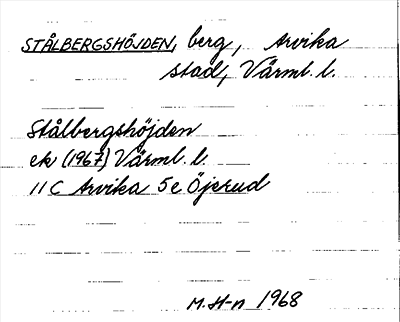 STÅLBERGSHÖJDEN, berg, Arvika
stad, Värml. l.
Stålbergshöjden
ek (1967) Värml. l.
11 C Arvika 5 e Öjerud
M. H-n 1968